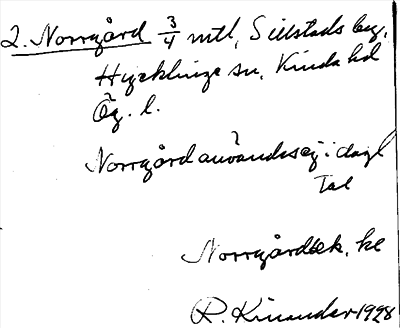 2. Norrgård 3/4 mtl, Sillstads by,
Hycklinge sn, Kinda hd
Ög. l.
Norrgård användes ej i dagl
Tal
Norrgårdbek. he
R. Kinander 1928